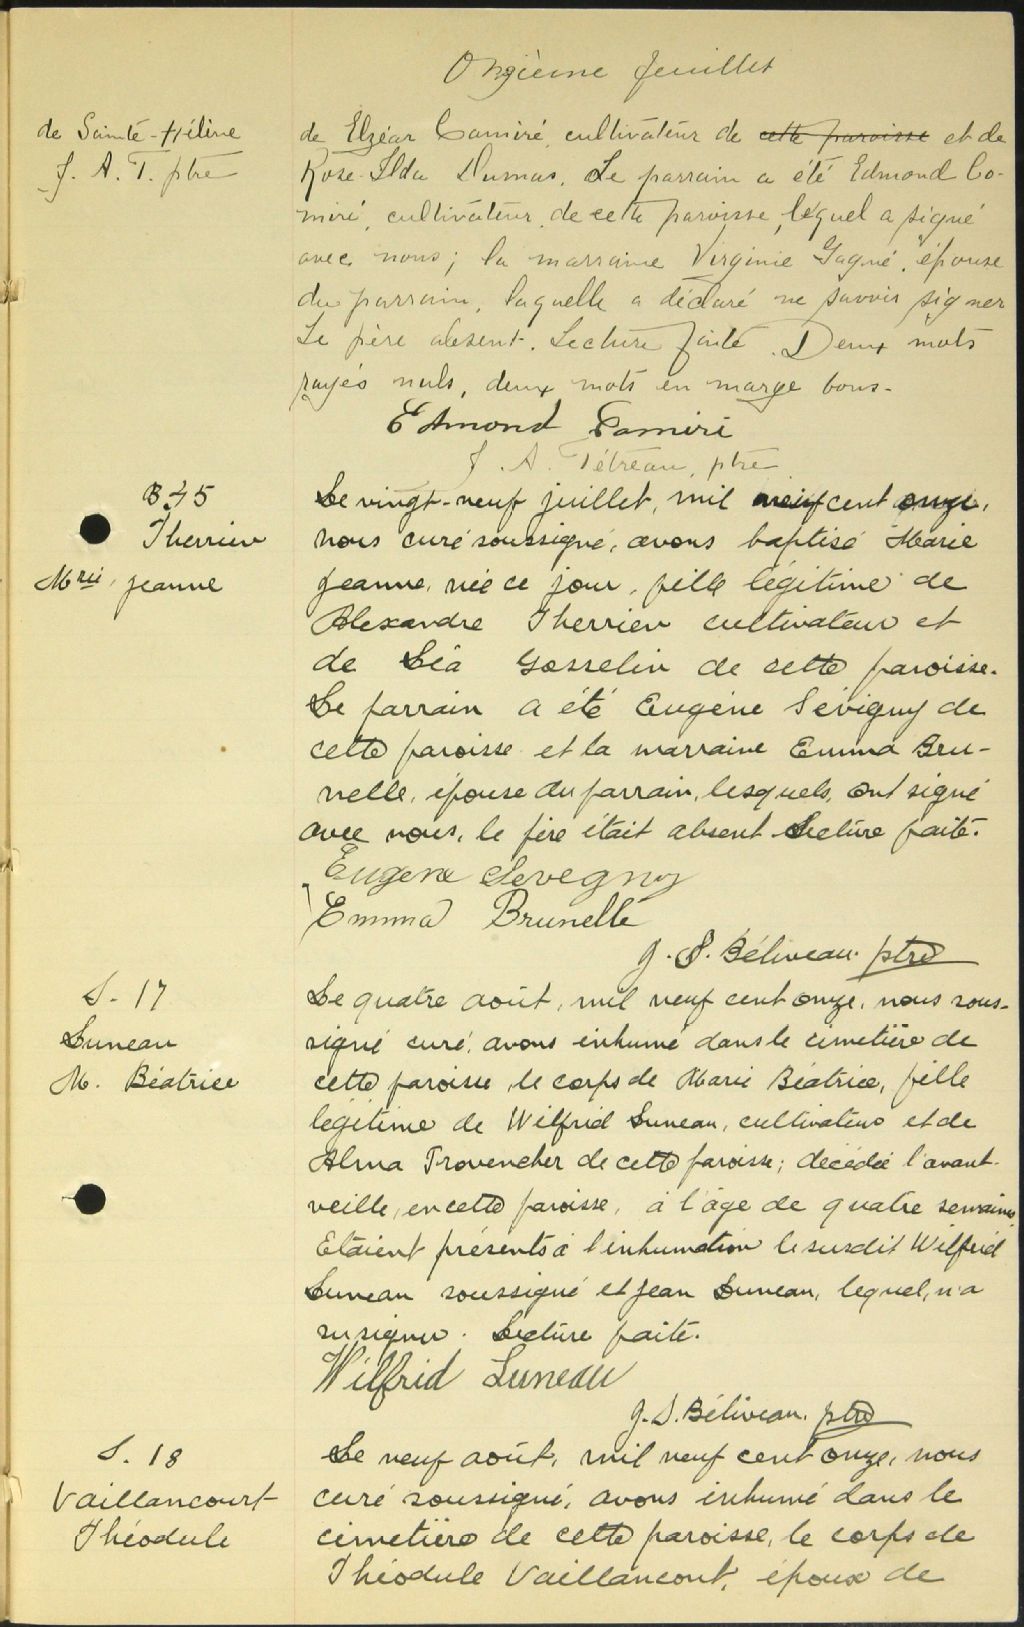 Onzième feuillet
de Sainte-Hélène
J. A. T. ptre
de Elzéar Camiré, cultivateur de cette paroisse et de
Rose-Ilda Dumas. Le parrain a été Edmond Ca-
miré, cultivateur de cette paroisse, lequel a signé
avec nous; la marraine Virginie Gagné, épouse
du parrain, laquelle a déclaré ne savoir signer
Le père absent. Lecture faite. Deux mots
rayés nuls, deux mots en marge bons-
Edmond Camiré
J. A. Tétreau, ptre
B. 45
Therrien
Mrie, Jeanne
Le vingt-neuf juillet, mil neuf cent onze,
nous curé soussigné, avons baptisé Marie
Jeanne, née ce jour, fille légitime de
Alexandre Therrien cultivateur et
de Léa Gosselin de cette paroisse.
Le parrain a été Eugène Sévigny de
cette paroisse et la marraine Emma Bru-
nelle, épouse du parrain, lesquels, ont signé
avec nous, le père était absent Lecture faite.
Eugene Sevegny
Emma Brunelle
J. S. Béliveau ptre
S. 17
Luneau
M. Béatrice
Le quatre août, mil neuf cent onze, nous sous-
signé curé, avons inhumé dans le cimetière de
cette paroisse, le corps de Marie Béatrice, fille
légitime de Wilfrid Luneau, cultivateur et de
Alma Provencher de cette paroisse; décédée l'avant-
veille, en cette paroisse, à l'âge de quatre semaines
Etaient présents à l'inhumation le susdit Wilfrid
Luneau soussigné et Jean Luneau, lequel, n'a
su signer. Lecture faite.
Wilfrid Luneau
J. S. Béliveau, ptre
S. 18
Vaillancourt
Théodule
Le neuf août, mil neuf cent onze, nous
curé soussigné, avons inhumé dans le
cimetière de cette paroisse, le corps de
Théodule Vaillancourt, époux de